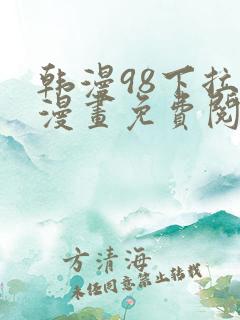 韩漫98下拉
漫畫免費閱
方清海
未经同意禁止转载